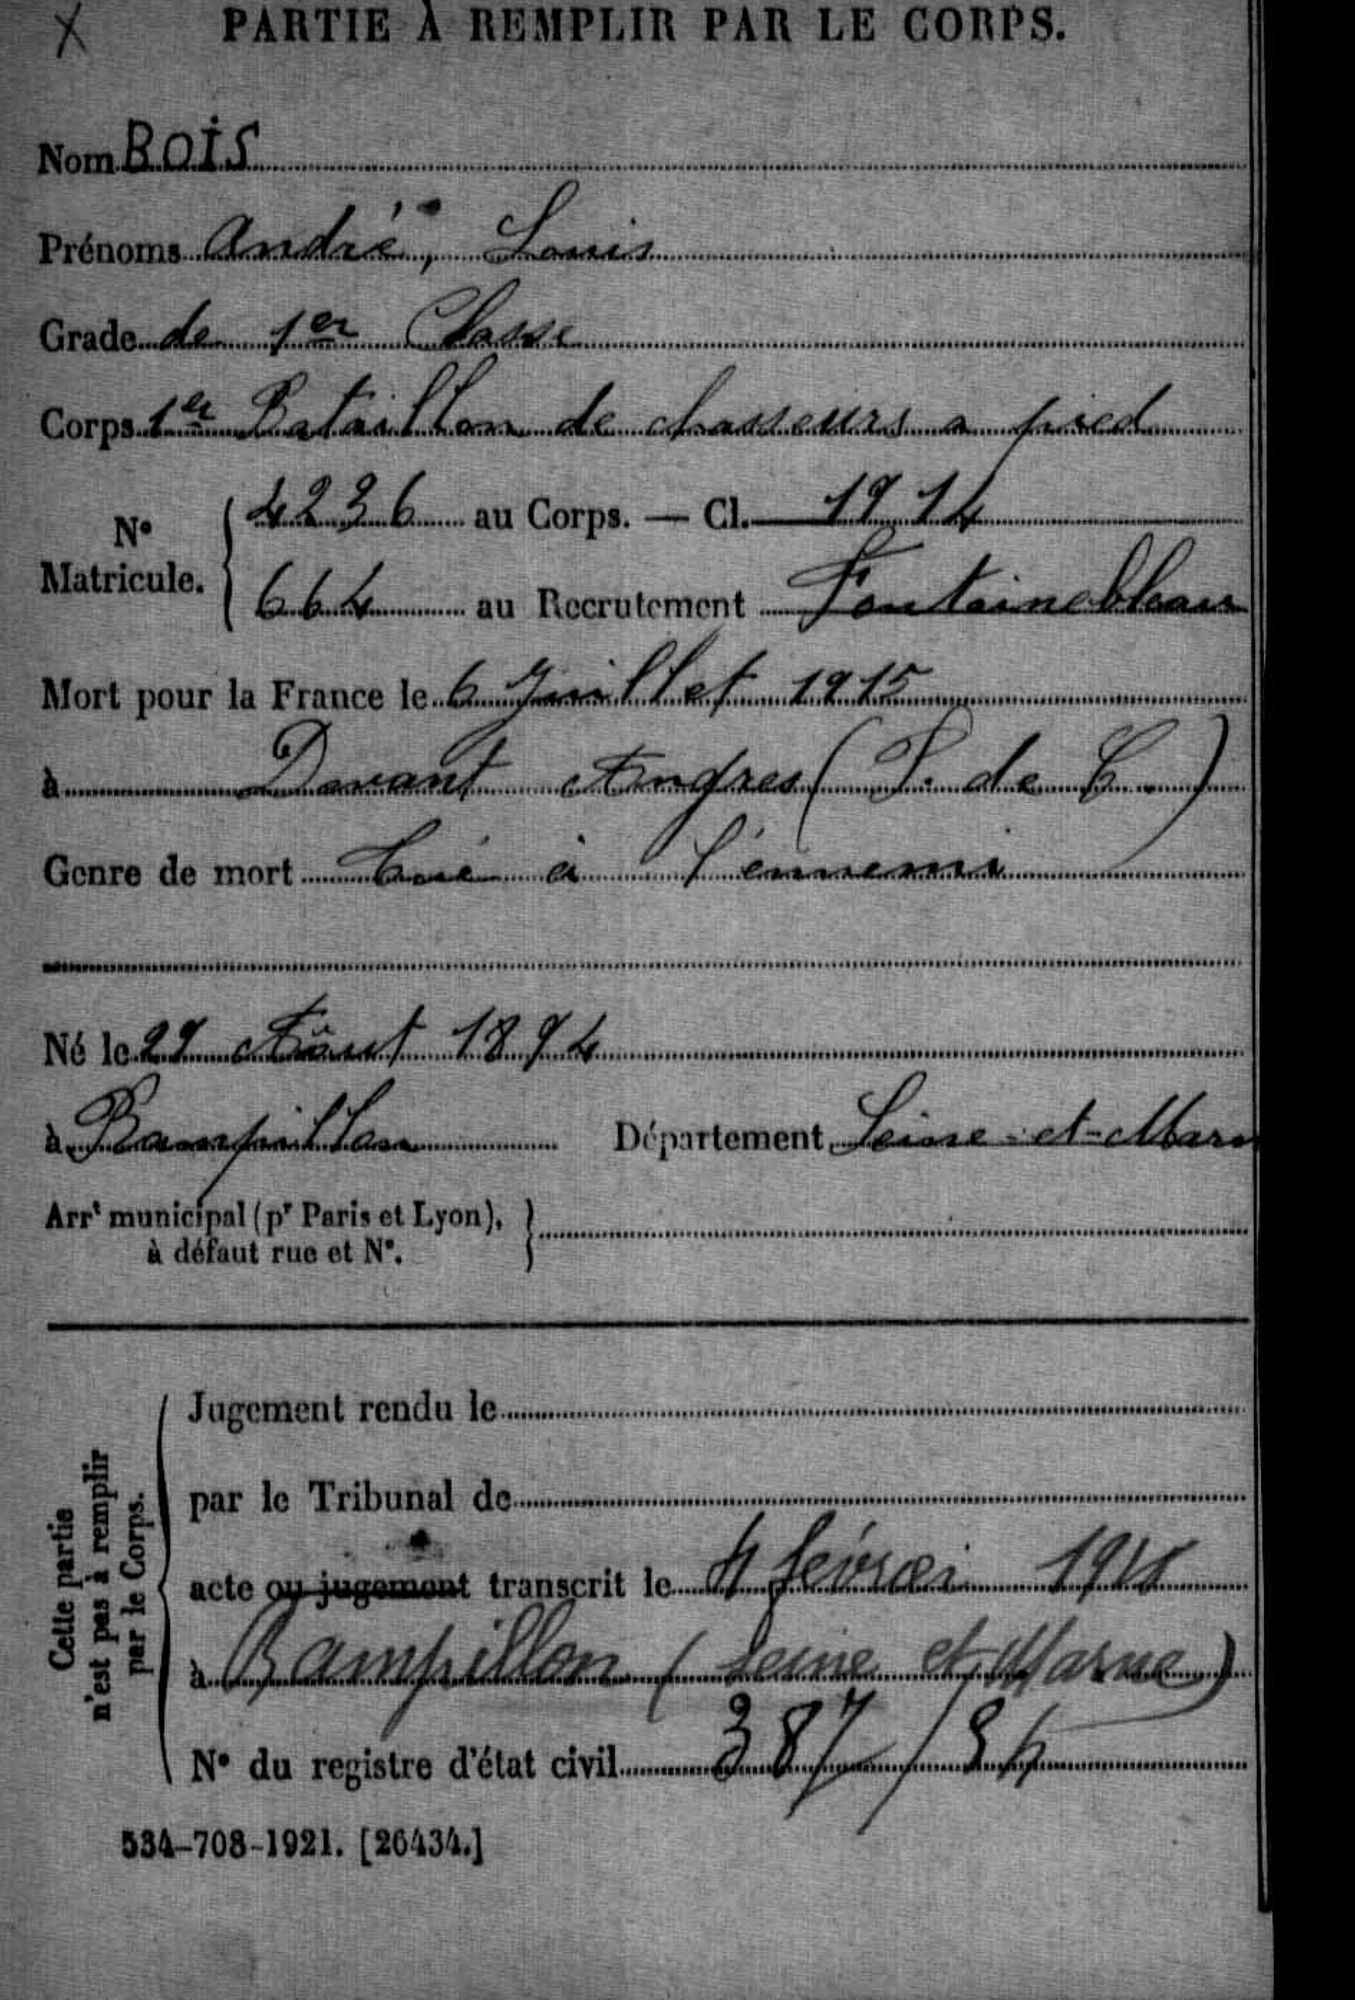 X
PARTIE À REMPLIR PAR LE CORPS.
Nom BOIS
Prénoms André, Louis
Grade de 1er Classe
Corps 1er Bataillon de chasseurs a pied
N° Matricule. { 4236 au Corps. — Cl. 1914
664 au Recrutement Fontainebleau
Mort pour la France le 6 Juillet 1915
à Devant Angres (P. de C.)
Genre de mort tué à l'ennemi
Né le 29 Août 1894
à Rampillon Département Seine-et-Marn
Arrt municipal (pr Paris et Lyon), à défaut rue et N°.
Cette partie n'est pas à remplir par le Corps.
Jugement rendu le
par le Tribunal de
acte ou jugement transcrit le 4 févrei
à Rampillon (Seine et Marne)
N° du registre d'état civil 387/
534-708-1921. [26434.]